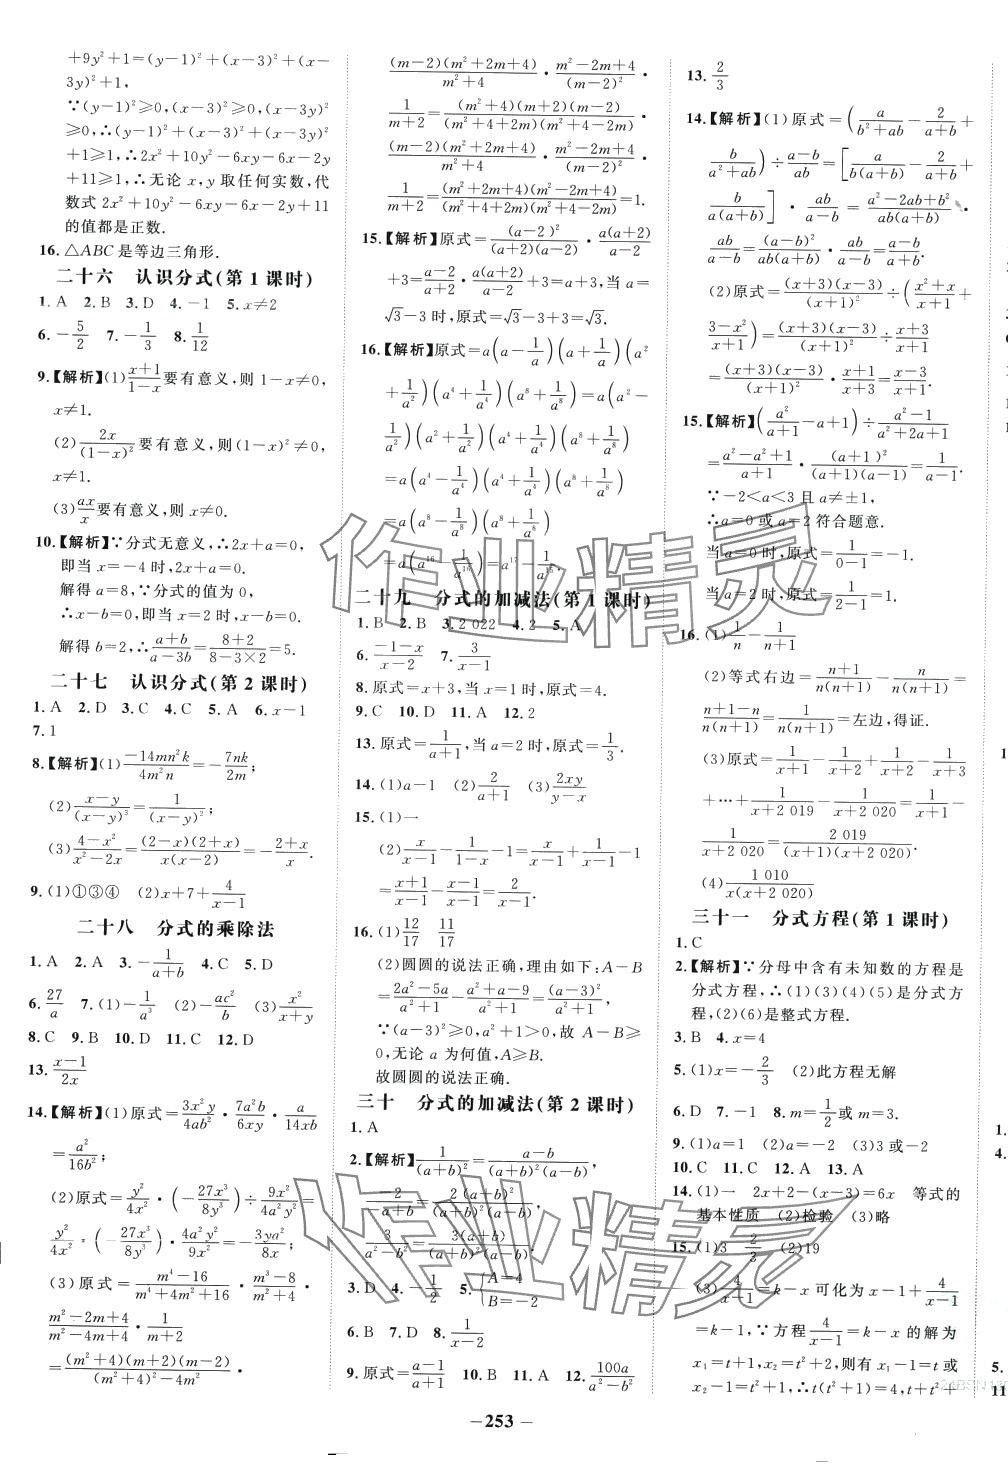 +9y²+1=(y−1)²+(x−3)²+(x−
3y)²+1,
∵(y−1)²≥0,(x−3)²≥0,(x−3y)²
≥0,∴(y−1)²+(x−3)²+(x−3y)²
+1≥1,∴2x²+10y²−6xy−6x−2y
+11≥1,∴无论 x,y 取任何实数,代
数式 2x²+10y²−6xy−6x−2y+11
的值都是正数.
16. △ABC 是等边三角形.
二十六 认识分式(第 1 课时)
1. A 2. B 3. D 4. −1 5. x≠2
6. −5/2 7. −1/3 8. 1/12
9.【解析】(1)(x+1)/(1−x)要有意义,则 1−x≠0,
x≠1.
(2)2x/(1−x)²要有意义,则(1−x)²≠0,
x≠1.
(3)ax/x要有意义,则 x≠0.
10.【解析】∵分式无意义,∴2x+a=0,
即当 x=−4 时,2x+a=0.
解得 a=8,∵分式的值为 0,
∴x−b=0,即当 x=2 时,x−b=0.
解得 b=2,∴(a+b)/(a−3b)=(8+2)/(8−3×2)=5.
二十七 认识分式(第 2 课时)
1. A 2. D 3. C 4. C 5. A 6. x−1
7. 1
8.【解析】(1)−14mn²k/4m²n=−7nk/2m;
(2)(x−y)/(x−y)³=1/(x−y)²;
(3)(4−x²)/(x²−2x)=(2−x)(2+x)/x(x−2)=−(2+x)/x.
9. (1)①③④ (2)x+7+4/(x−1)
二十八 分式的乘除法
1. A 2. A 3. −1/(a+b) 4. C 5. D
6. 27/a 7. (1)−1/a³ (2)−ac²/b (3)x²/(x+y)
8. C 9. B 10. D 11. C 12. D
13. (x−1)/2x
14.【解析】(1)原式=3x²y/4ab²·7a²b/6xy·a/14xb
=a²/16b²;
(2)原式=y²/4x²·(−27x³/8y³)÷9x²/4a²y²=
y²/4x²·(−27x³/8y³)·4a²y²/9x²=−3ya²/8x;
(3)原式=(m⁴−16)/(m⁴+4m²+16)·(m³−8)/(m²+4)·
(m²−2m+4)/(m²−4m+4)·1/(m+2)
=(m²+4)(m+2)(m−2)/((m²+4)²−4m²)·
(m−2)(m²+2m+4)/(m²+4)·(m²−2m+4)/(m−2)²·
1/(m+2)=(m²+4)(m+2)(m−2)/(m²+4+2m)(m²+4−2m)·
(m−2)(m²+2m+4)/(m²+4)·(m²−2m+4)/(m−2)²·
1/(m+2)=(m²+2m+4)(m²−2m+4)/(m²+2m+4)(m²−2m+4)=1.
15.【解析】原式=(a−2)²/(a+2)(a−2)·a(a+2)/(a−2)
+3=(a−2)/(a+2)·a(a+2)/(a−2)+3=a+3,当 a=
√3−3 时,原式=√3−3+3=√3.
16.【解析】原式=a(a−1/a)(a+1/a)(a²
+1/a²)(a⁴+1/a⁴)(a⁸+1/a⁸)=a(a²−
1/a²)(a²+1/a²)(a⁴+1/a⁴)(a⁸+1/a⁸)
=a(a⁴−1/a⁴)(a⁴+1/a⁴)(a⁸+1/a⁸)
=a(a⁸−1/a⁸)(a⁸+1/a⁸)
=a(a¹⁶−1/a¹⁶)=a¹⁷−1/a¹⁵.
二十九 分式的加减法(第 1 课时)
1. B 2. B 3. 2 022 4. 2 5. A
6. (−1−x)/(x−2) 7. 3/(x−1)
8. 原式=x+3,当 x=1 时,原式=4.
9. C 10. D 11. A 12. 2
13. 原式=1/(a+1),当 a=2 时,原式=1/3.
14. (1)a−1 (2)2/(a+1) (3)2xy/(y−x)
15. (1)一
(2)x/(x−1)−1/(1−x)−1=x/(x−1)+1/(x−1)−1
=(x+1)/(x−1)−(x−1)/(x−1)=2/(x−1).
16. (1)12/17 11/17
(2)圆圆的说法正确,理由如下:A−B
=(2a²−5a)/(a²+1)−(a²+a−9)/(a²+1)=(a−3)²/(a²+1).
∵(a−3)²≥0,a²+1>0,故 A−B≥
0,无论 a 为何值,A≥B.
故圆圆的说法正确.
三十 分式的加减法(第 2 课时)
1. A
2.【解析】1/(a+b)²=(a−b)/(a+b)²(a−b),
−2/(a+b)=2(a+b)²/(a+b)²(a−b),
3/(a²−b²)=3(a+b)/(a+b)²(a−b).
3. D 4. −1/2 5. {A=4
B=−2
6. B 7. D 8. 1/(x−2)
9. 原式=(a−1)/(a+1) 10. B 11. A 12. 100a/(a²−b²)
13. 2/3
14.【解析】(1)原式=(a/(b²+ab)−2/(a+b)+
b/(a²+ab))÷(a−b)/ab=[a/b(a+b)−2/(a+b)+
b/a(a+b)]·ab/(a−b)=(a²−2ab+b²)/ab(a+b)·
ab/(a−b)=(a−b)²/ab(a+b)·ab/(a−b)=(a−b)/(a+b).
(2)原式=(x+3)(x−3)/(x+1)²÷((x²+x)/(x+1)+
(3−x²)/(x+1))=(x+3)(x−3)/(x+1)²÷(x+3)/(x+1)
=(x+3)(x−3)/(x+1)²·(x+1)/(x+3)=(x−3)/(x+1).
15.【解析】(a²/(a+1)−a+1)÷(a²−1)/(a²+2a+1)
=(a²−a²+1)/(a+1)·(a+1)²/(a+1)(a−1)=1/(a−1).
∵−2<a<3 且 a≠±1,
∴a=0 或 a=2 符合题意.
当 a=0 时,原式=1/(0−1)=−1.
当 a=2 时,原式=1/(2−1)=1.
16. (1)1/n−1/(n+1)
(2)等式右边=(n+1)/n(n+1)−n/n(n+1)=
(n+1−n)/n(n+1)=1/n(n+1)=左边,得证.
(3)原式=1/(x+1)−1/(x+2)+1/(x+2)−1/(x+3)
+…+1/(x+2 019)−1/(x+2 020)=1/(x+1)−
1/(x+2 020)=2 019/(x+1)(x+2 020).
(4)1 010/x(x+2 020)
三十一 分式方程(第 1 课时)
1. C
2.【解析】∵分母中含有未知数的方程是
分式方程,∴(1)(3)(4)(5)是分式方
程,(2)(6)是整式方程.
3. B 4. x=4
5. (1)x=−2/3 (2)此方程无解
6. D 7. −1 8. m=1/2或 m=3.
9. (1)a=1 (2)a=−2 (3)3 或−2
10. C 11. C 12. A 13. A
14. (1)一 2x+2−(x−3)=6x 等式的
基本性质 (2)检验 (3)略
15. (1)3 2/3 (2)19
(3)4/(x−1)=k−x 可化为 x−1+4/(x−1)
=k−1,∵方程4/(x−1)=k−x 的解为
x₁=t+1,x₂=t²+2,则有 x−1=t 或
x₂−1=t²+1,∴t(t²+1)=4,t+t²+
−253−
作业精灵
作业精灵